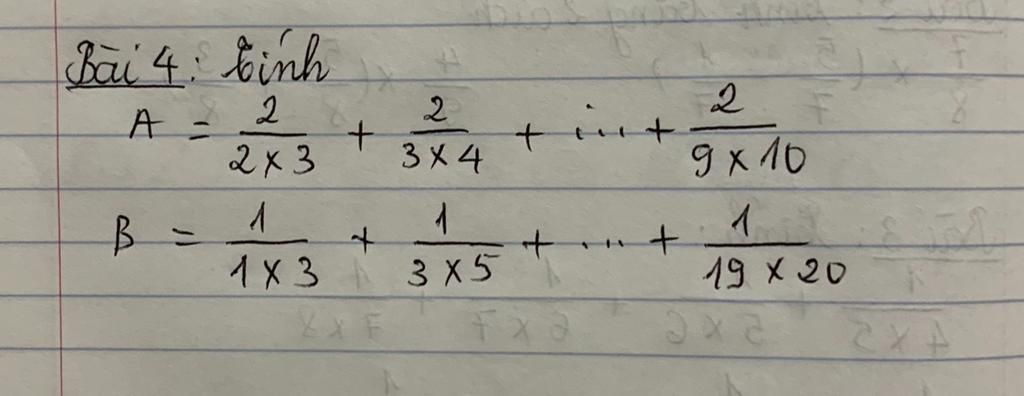 Bài 4: tính
A = 2/(2 x 3) + 2/(3 x 4) + ... + 2/(9 x 10)
B = 1/(1 x 3) + 1/(3 x 5) + ... + 1/(19 x 20)